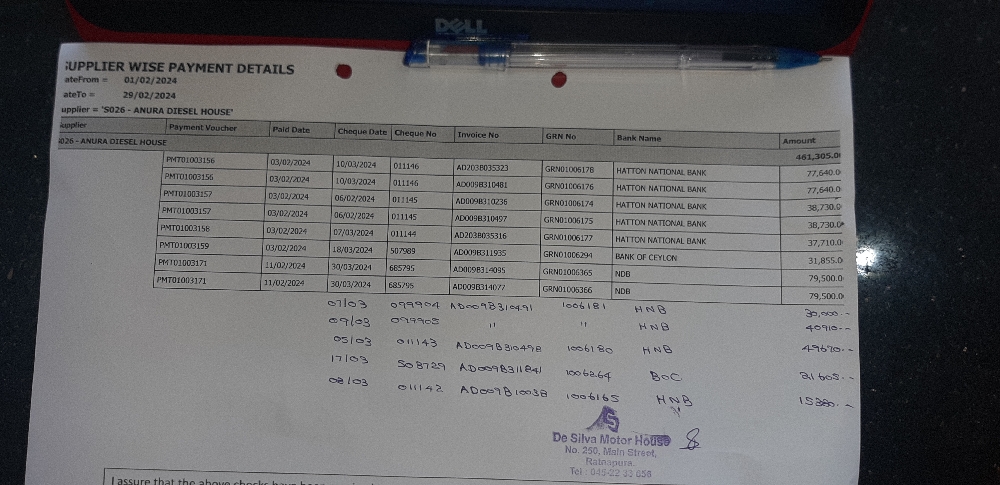 DELL
SUPPLIER WISE PAYMENT DETAILS
ateFrom = 01/02/2024
ateTo = 29/02/2024
upplier = 'S026 - ANURA DIESEL HOUSE'
upplier Payment Voucher Paid Date Cheque Date Cheque No Invoice No GRN No Bank Name Amount
026 - ANURA DIESEL HOUSE 461,305.0
PMT01003156 03/02/2024 10/03/2024 011146 AD203B035323 GRN01006178 HATTON NATIONAL BANK 77,640.0
PMT01003156 03/02/2024 10/03/2024 011146 AD009B310481 GRN01006176 HATTON NATIONAL BANK 77,640.0
PMT01003157 03/02/2024 06/02/2024 011145 AD009B310236 GRN01006174 HATTON NATIONAL BANK 38,730.0
PMT01003157 03/02/2024 06/02/2024 011145 AD009B310497 GRN01006175 HATTON NATIONAL BANK 38,730.0
PMT01003158 03/02/2024 07/03/2024 011144 AD203B035316 GRN01006177 HATTON NATIONAL BANK 37,710.0
PMT01003159 03/02/2024 18/03/2024 507989 AD009B311935 GRN01006294 BANK OF CEYLON 31,855.0
PMT01003171 11/02/2024 30/03/2024 685795 AD009B314095 GRN01006365 NDB 79,500.0
PMT01003171 11/02/2024 30/03/2024 685795 AD009B314077 GRN01006366 NDB 79,500.0
07/03 099904 AD009B310491 1006181 HNB 30,000 --
09/03 099905 " " HNB 40910 --
05/03 011143 AD009B310498 1006180 HNB 49670 --
17/03 508729 AD009B311841 1006264 BOC 21605 --
08/03 011142 AD009B10038 1006165 HNB 15380 --
De Silva Motor House
No. 250, Main Street,
Ratnapura.
Tel : 045-22 33 656
I assure that the above checks have been